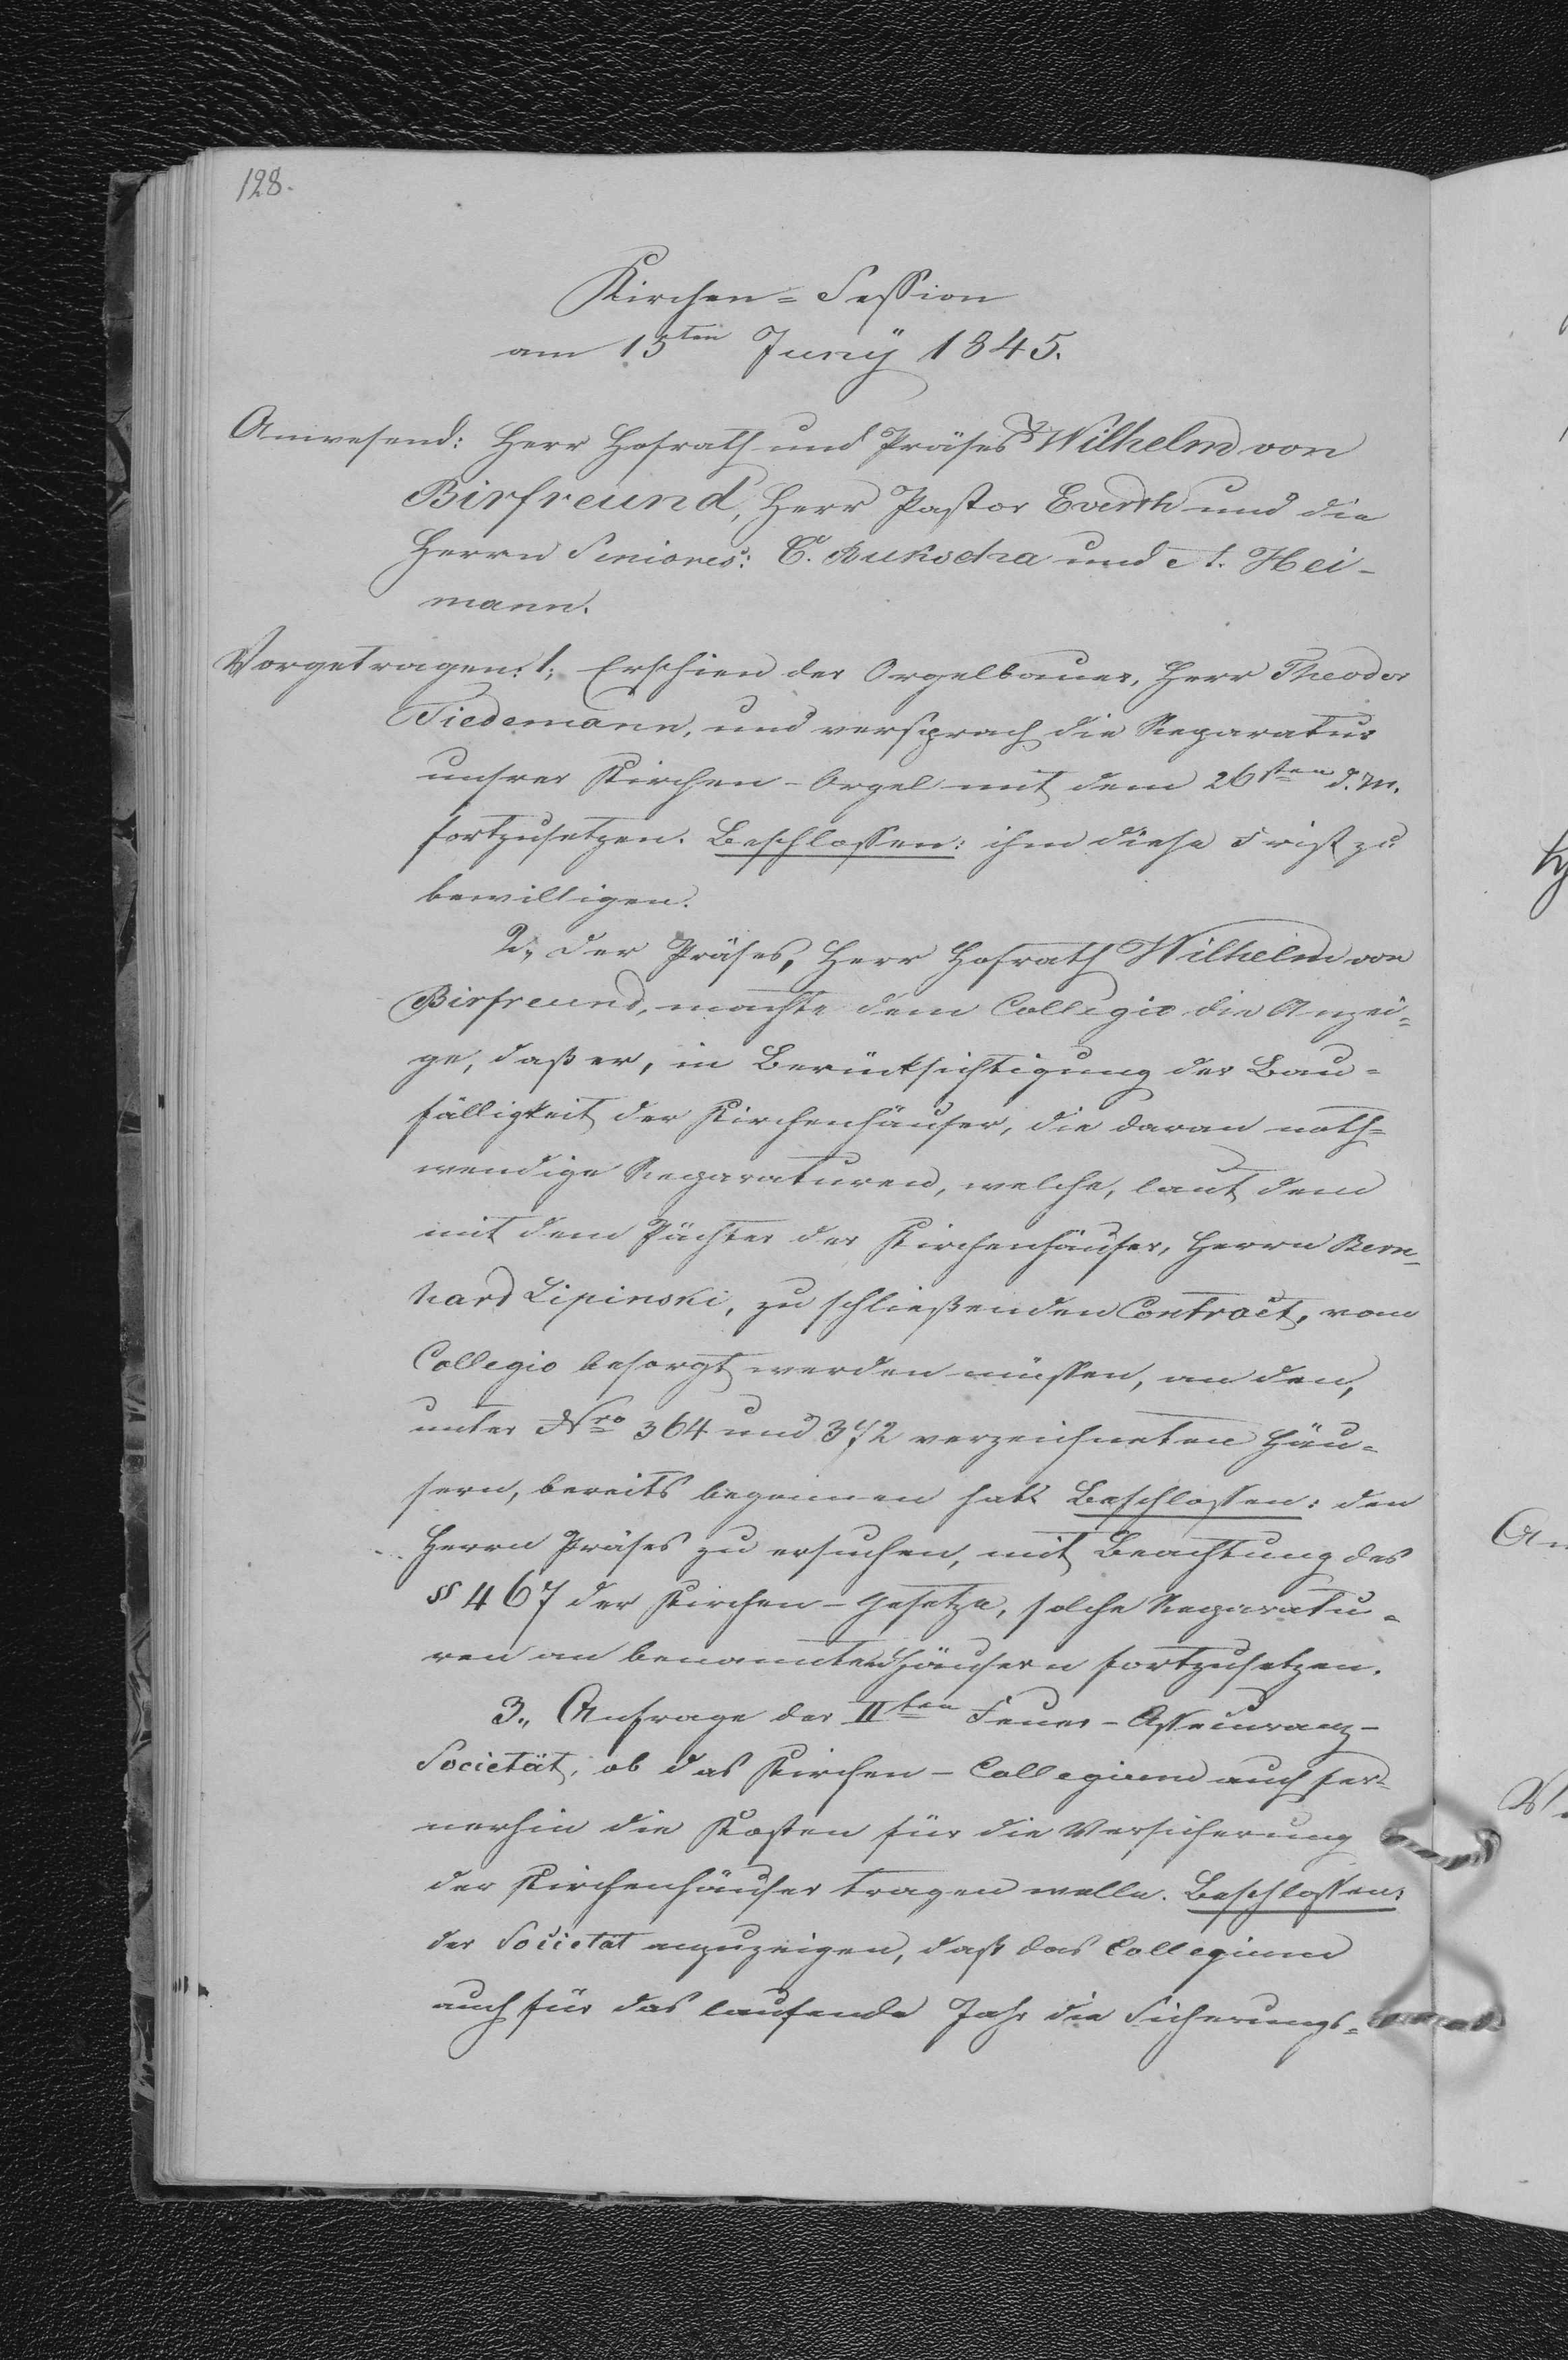 128.
Kirchen=Session
am 15ten Junÿ 1845.
Anwesend: Herr Hofrath und Präses Wilhelm von
Birfreund, Herr Pastor Everth und die
Herrn Seniores: C. Kukscha und A. Hei-
mann.
Vorgetragen: 1., Erschien der Orgelbauer, Herr Theodor
Tiedemann, und versprach die Reparatur
unsrer Kirchen-Orgel mit dem 26sten d. M.
fortzusetzen. Beschlossen: ihm diese Frist zu
bewilligen.
2., Der Präses, Herr Hofrath Wilhelm von
Birfreund, machte dem Collegio die Anzei=
ge, daß er, in Berücksichtigung der Bau=
fälligkeit der Kirchenhäuser, die daran noth=
wendige Reparaturen, welche, laut dem
mit dem Pächter der Kirchenhäuser, Herrn Bern-
hard Lipinski, zu schließenden Contract, vom
Collegio besorgt werden müssen, an den,
unter Nro 364 und 372 verzeichneten Häu=
sern, bereits begonnen hat. Beschlossen: den
Herrn Präses zu ersuchen, mit Beachtung des
§ 467 der Kirchen-Gesetze, solche Reparatu=
ren an benannten Häusern fortzusetzen.
3., Anfrage der IIten Feuer-Assecuranz-
Societät, ob das Kirchen-Collegium auch fer=
nerhin die Kosten für die Versicherung
der Kirchenhäuser tragen wolle. Beschlossen:
der Societät anzuzeigen, daß das Collegium
auch für das laufende Jahr die Sicherungs=